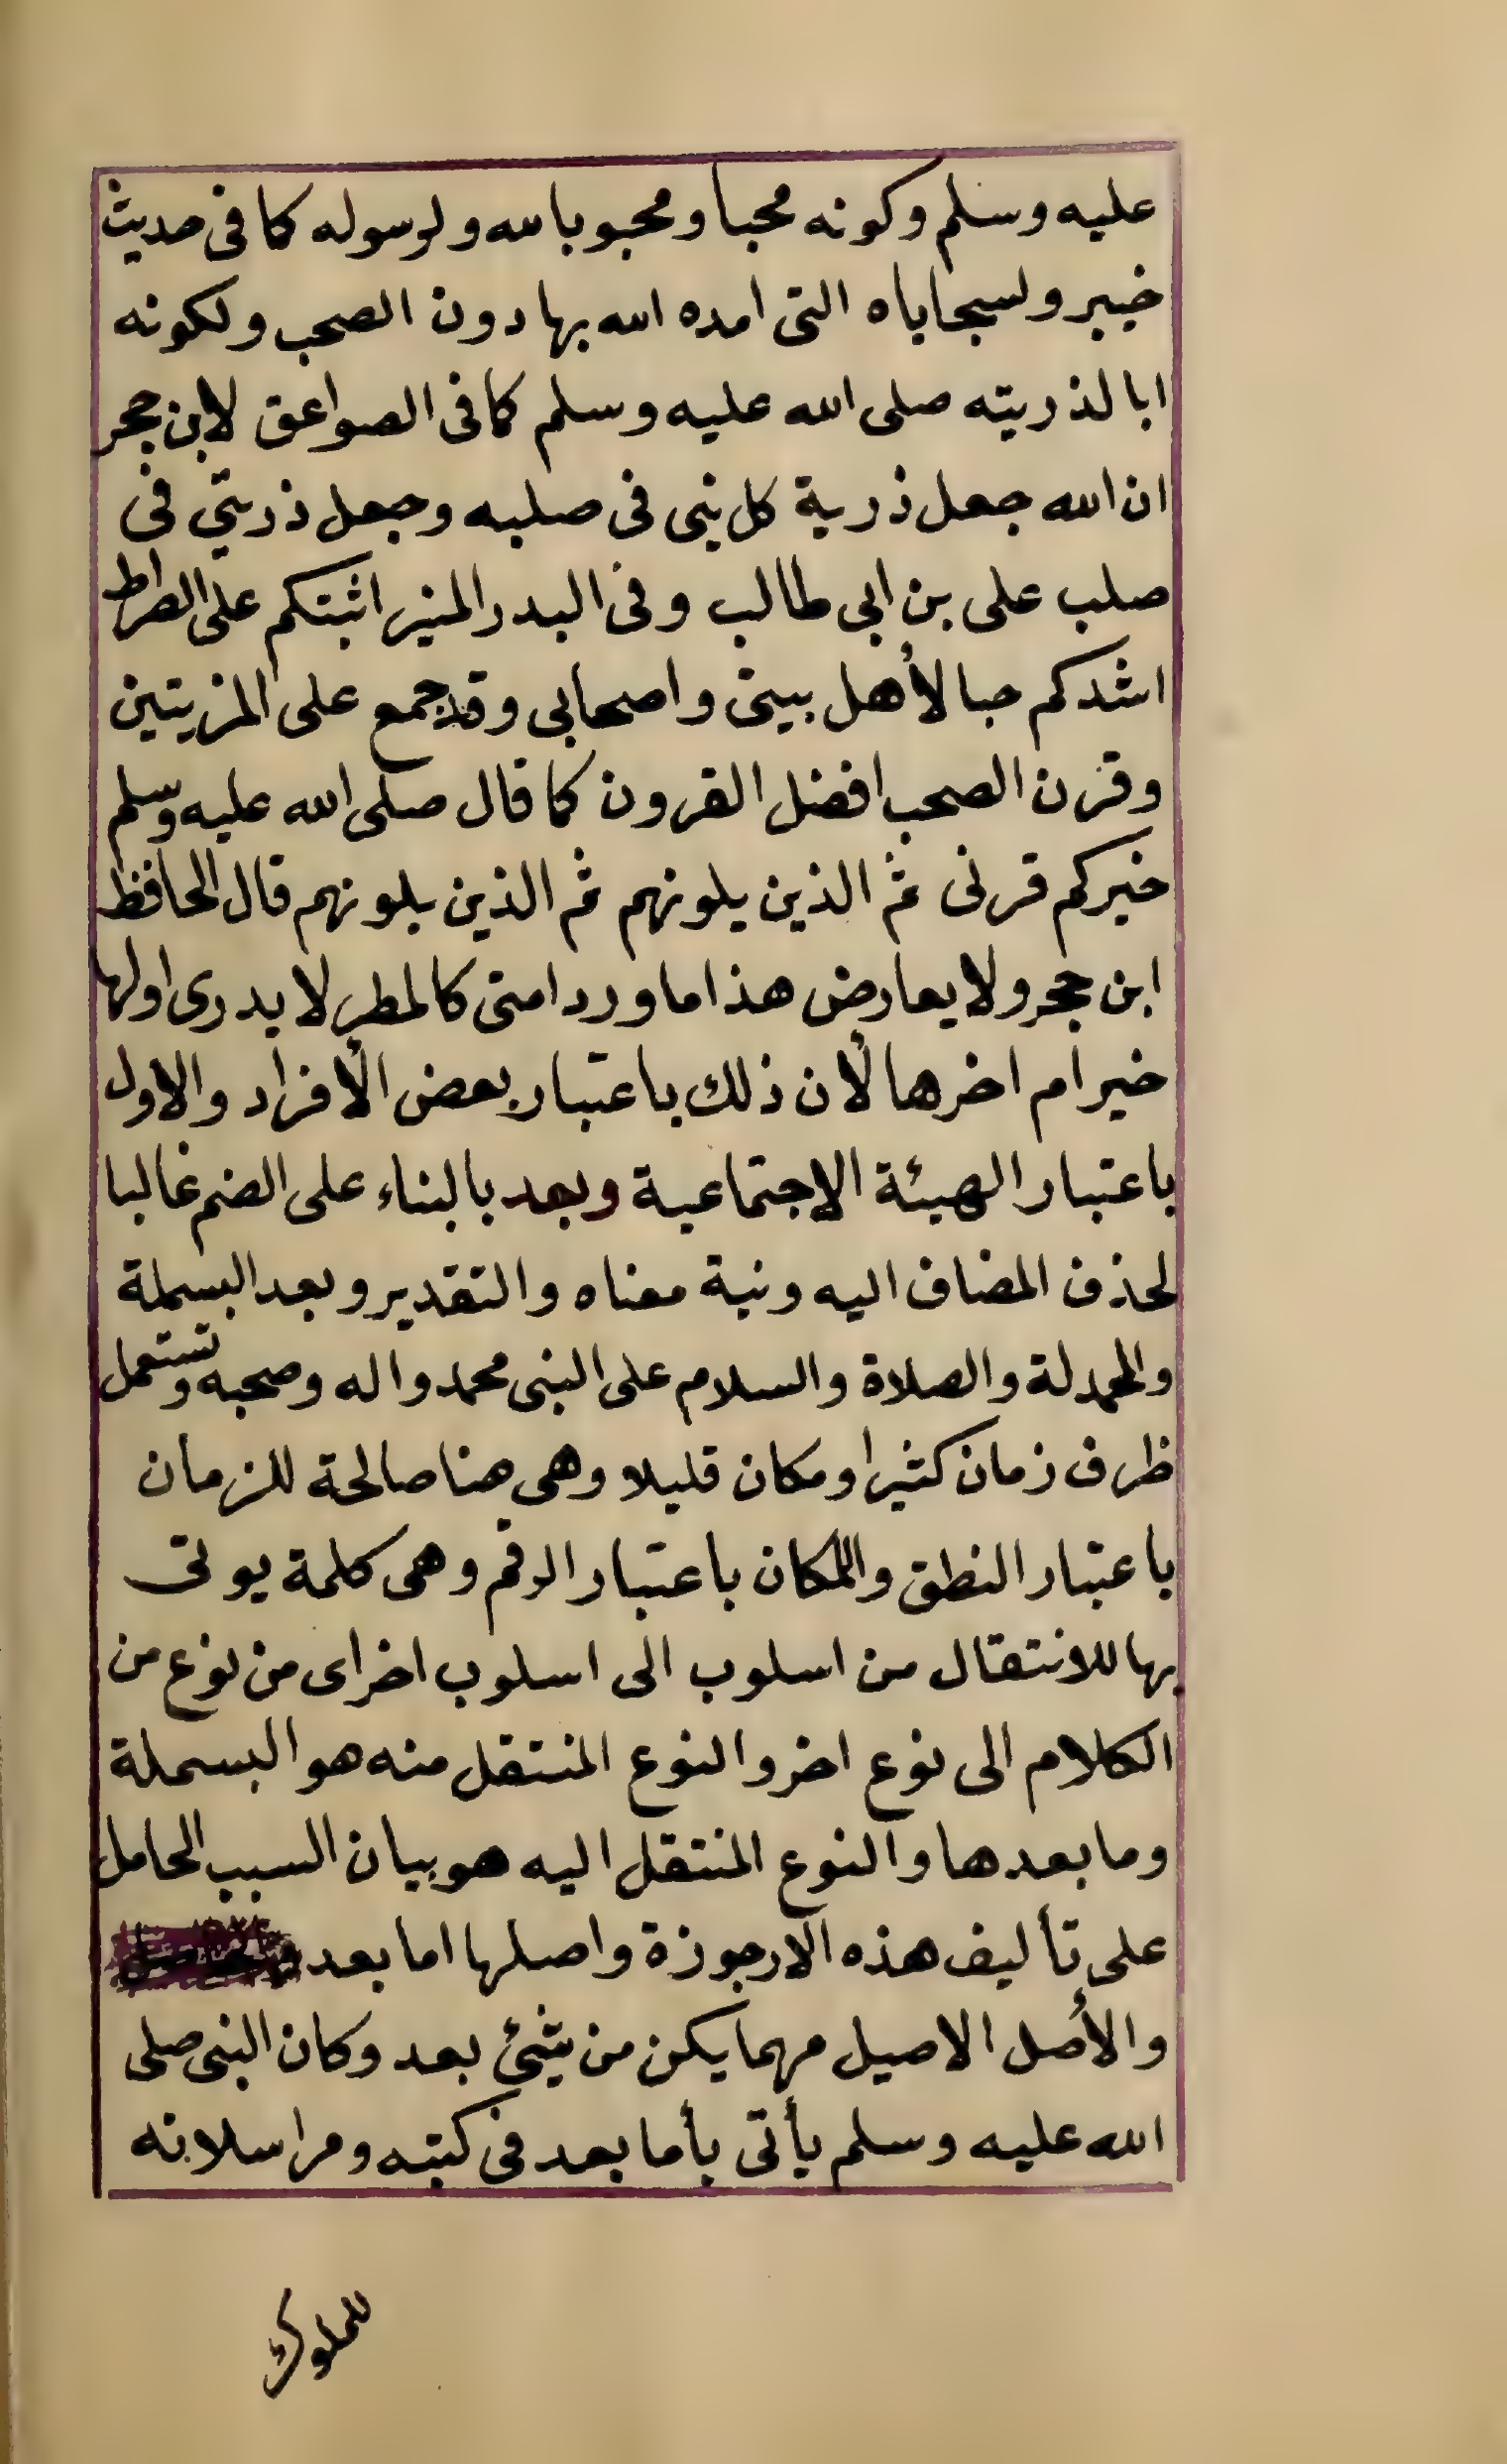 عليه وسلم وكونه محبا ومحبوبا لله ولرسوله كما فى حديث
خيبر ولسجاياه التى امده الله بها دون الصحب ولكونه
ابا لذريته صلى الله عليه وسلم كما فى الصواعق لابن حجر
ان الله جعل ذرية كل نبى فى صلبه وجعل ذريتي فى
صلب على بن ابى طالب وفى البدر المنير اثبتكم على الصراط
اشدكم حبا لأهل بيتى واصحابى وقد جمع على المزيتين
وقرن الصحب افضل القرون كما قال صلى الله عليه وسلم
خيركم قرنى ثم الذين يلونهم ثم الذين يلونهم قال الحافظ
ابن حجر ولا يعارض هذا ما ورد امتى كالمطر لا يدرى اولها
خير ام اخرها لأن ذلك باعتبار بعض الأفراد والاول
باعتبار الهيئة الاجتماعية وبعد بالبناء على الضم غالبا
لحذف المضاف اليه ونية معناه والتقدير وبعد البسملة
والحمدلة والصلاة والسلام على النبى محمد واله وصحبه وتستعمل
ظرف زمان كثيرا ومكان قليلا وهى هنا صالحة للزمان
باعتبار النطق والمكان باعتبار الرقم وهى كلمة يوتى
بها للانتقال من اسلوب الى اسلوب اخراى من نوع من
الكلام الى نوع اخر والنوع المنتقل منه هو البسملة
وما بعدها والنوع المنتقل اليه هو بيان السبب الحامل
على تأليف هذه الارجوزة واصلها اما بعد
والأصل الاصيل مهما يكن من شئ بعد وكان النبى صلى
الله عليه وسلم يأتى بأما بعد فى كتبه ومراسلاته
للملوك